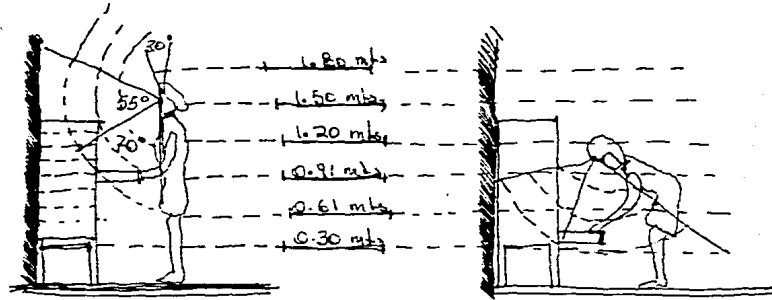 30
1.80 mts
55°
1.50 mts
70°
1.20 mts
0.91 mts
0.61 mts
0.30 mts